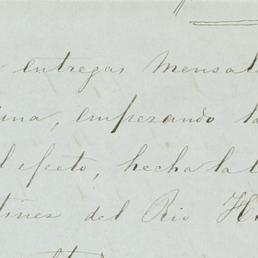 entregas mensal
una, empezando la
l efecto, hecha la
tinez del Rio H